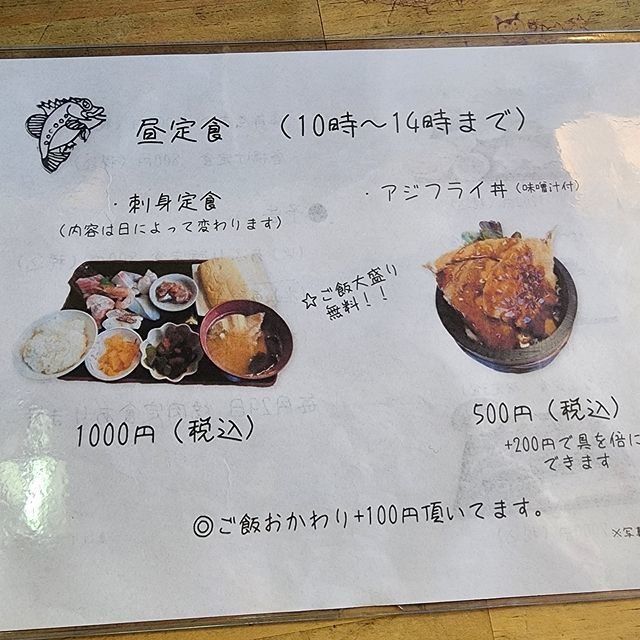 昼定食 (10時～14時まで)
・刺身定食
(内容は日によって変わります)
・アジフライ丼(味噌汁付)
☆ご飯大盛り
無料！！
1000円(税込)
500円(税込)
+200円で具を倍に
できます
◎ご飯おかわり+100円頂いてます。
※写真